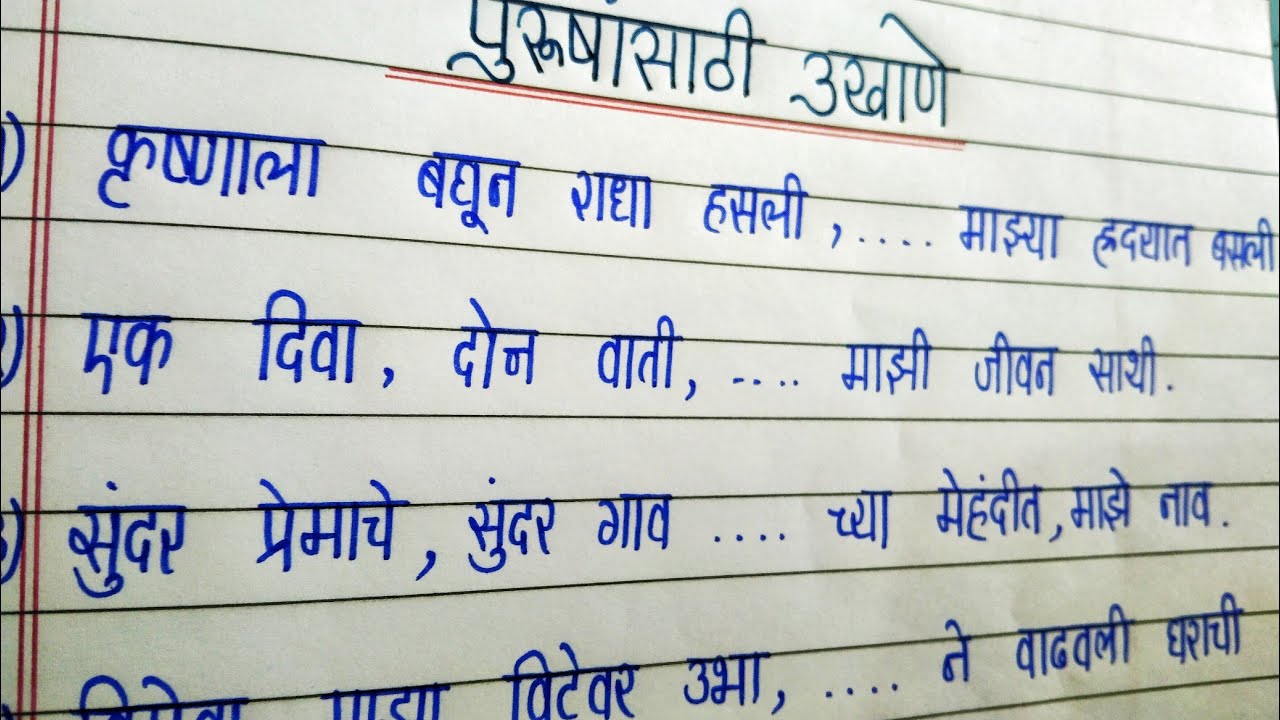 पुरूषांसाठी उखाणे
कृष्णाला बघून राधा हसली ,.... माझ्या ह्रदयात बसली
एक दिवा, दोन वाती, .... माझी जीवन साथी.
सुंदर प्रेमाचे, सुंदर गाव .... च्या मेहंदीत, माझे नाव.
माझा विटेवर उभा, .... ने वाढवली घराची